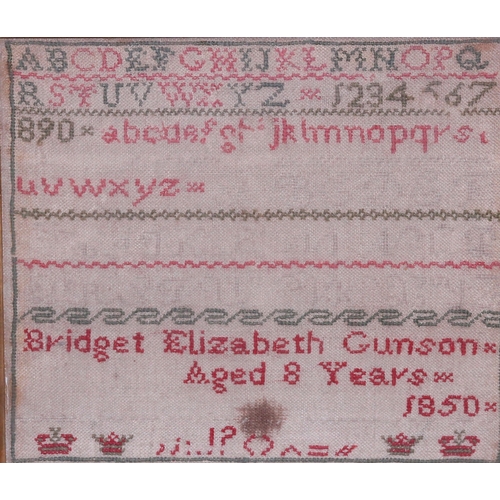 ABCDEFGHIJKLMNOPQ
RSTUVWXYZ = 1234 567
890 × abcdefghijklmnopqrst
uvwxyz =
Bridget Elizabeth Gunson ×
Aged 8 Years =
1850 ×
,;:.!? () ^ = "